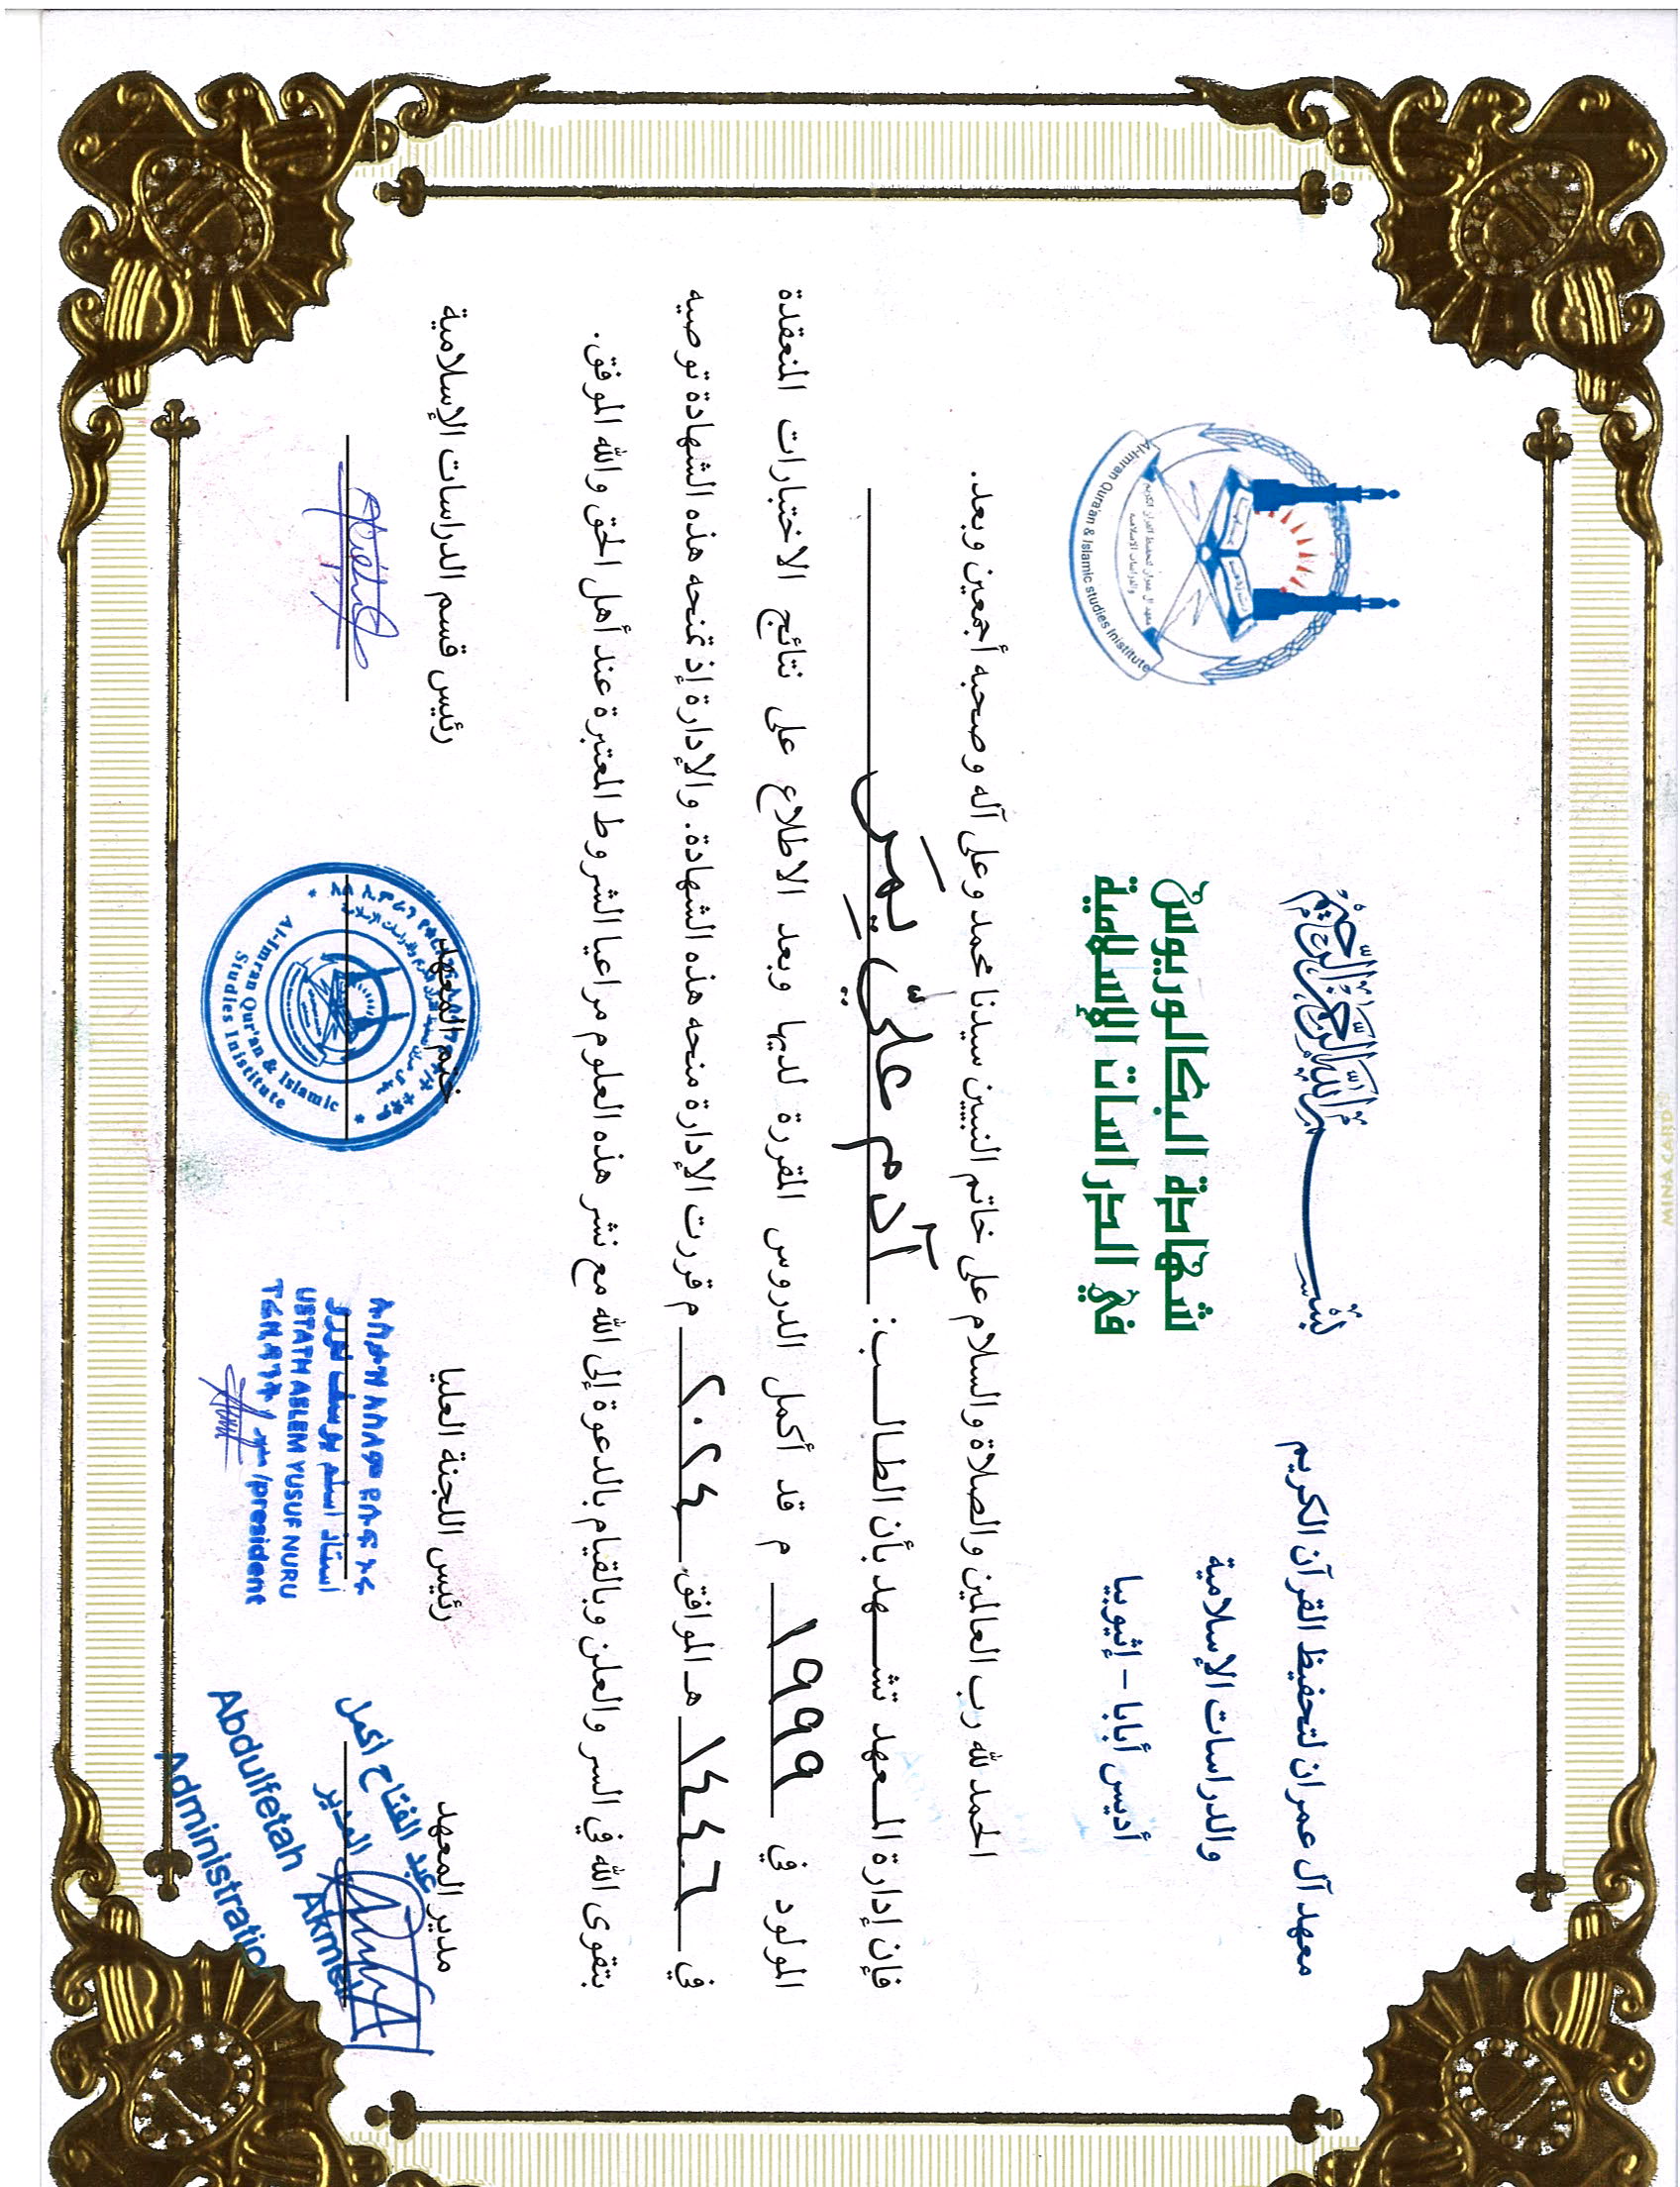 بسم الله الرحمن الرحيم
معهد آل عمران لتحفيظ القرآن الكريم
والدراسات الإسلامية
أديس أبابا - إثيوبيا
شهادة البكالوريوس
في الدراسات الإسلامية
معهد آل عمران لتحفيظ القرآن الكريم
والدراسات الإسلامية
Al-Imran Quraan & Islamic studies Inistitute
الحمد لله رب العالمين والصلاة والسلام على خاتم النبيين سيدنا محمد وعلى آله وصحبه أجمعين وبعد.
فإن إدارة المعهد تشهد بأن الطالب: آدم عليّ يِمَر
المولود في ١٩٩٩ م قد أكمل الدروس المقررة لديها وبعد الاطلاع على نتائج الاختبارات المنعقدة
في ١٤٤٦ هـ الموافق ٢٠٢٤ م قررت الإدارة منحه هذه الشهادة. والإدارة إذ تمنحه هذه الشهادة توصيه
بتقوى الله في السر والعلن وبالقيام بالدعوة إلى الله مع نشر هذه العلوم مراعيا الشروط المعتبرة عند أهل الحق والله الموفق.
مدير المعهد
رئيس اللجنة العليا
ختم المعهد
رئيس قسم الدراسات الإسلامية
عبد الفتاح اكمل
المدير
Abdulfetah Akmel
Administratio
استاذ اسلم يوسف نورو
USTATH ASLEM YUSUF NURU
/president
Al-Imran Qur'an & Islamic
Studies Inistitute
MINA CARD